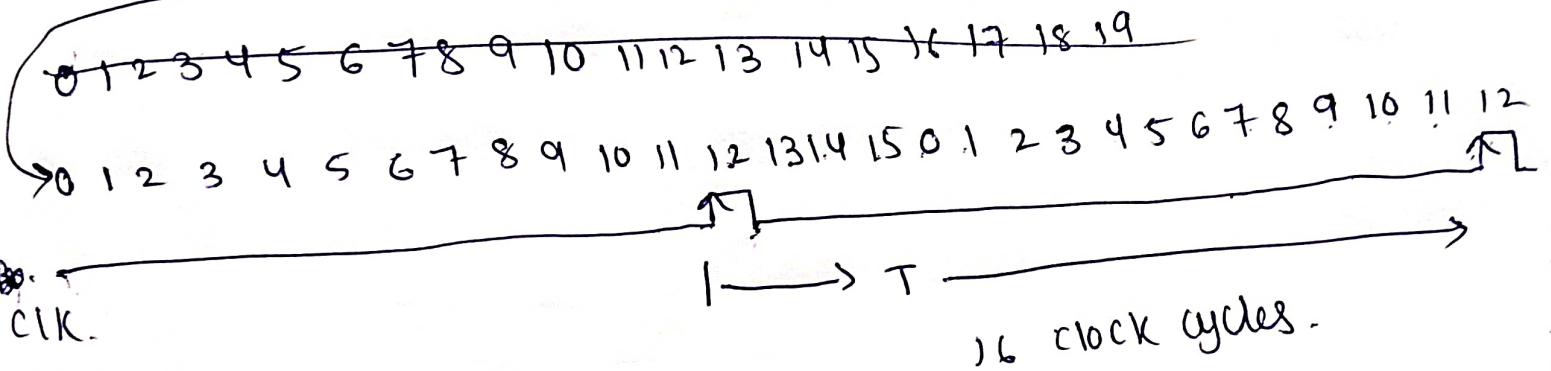 0 1 2 3 4 5 6 7 8 9 10 11 12 13 14 15 16 17 18 19
0 1 2 3 4 5 6 7 8 9 10 11 12 13 14 15 0 1 2 3 4 5 6 7 8 9 10 11 12
T
CLK.
16 clock cycles.